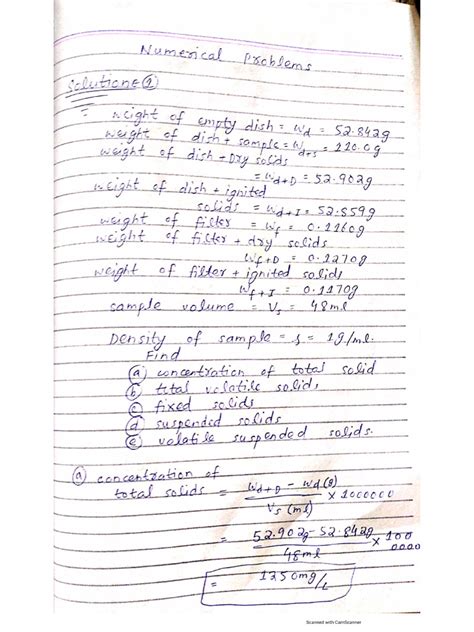 Numerical Problems
Solution ①
weight of empty dish = Wd = 52.842g
weight of dish + sample = Wd+s = 110.0g
weight of dish + Dry solids
= Wd+D = 52.902g
weight of dish + ignited
solids = Wd+I = 52.859g
weight of filter = Wf = 0.1160g
weight of filter + dry solids
Wf+D = 0.1270g
weight of filter + ignited solids
Wf+I = 0.1170g
sample volume = Vs = 48ml
Density of sample = = 1g/ml.
Find
ⓐ concentration of total solid
ⓑ total volatile solids
ⓒ fixed solids
ⓓ suspended solids
ⓔ volatile suspended solids.
ⓐ concentration of
total solids = Wd+D - Wd(g) / Vs (ml) × 1000000
= 52.902g - 52.842g / 48ml × 100
0000
= 1250mg/L
Scanned with CamScanner